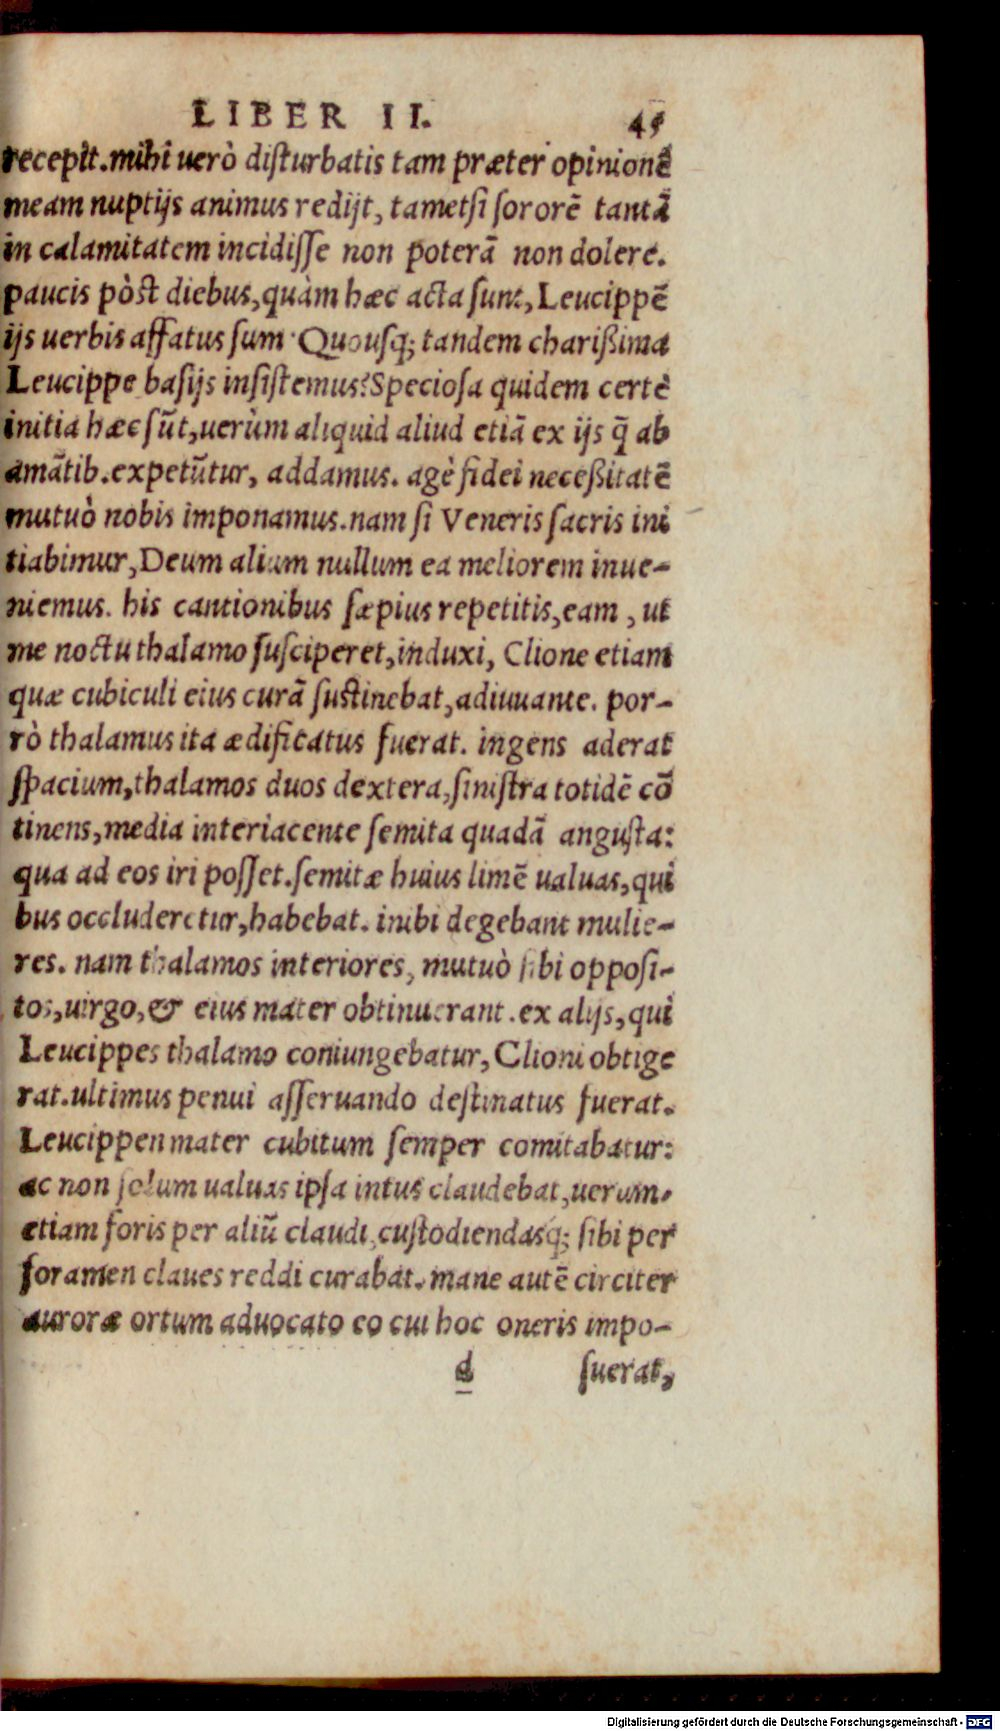 LIBER II. 45
recepit.mihi uerò disturbatis tam præter opinionē
meam nuptijs animus redijt, tametsi sororē tantā
in calamitatem incidisse non poterā non dolere.
paucis pòst diebus,quàm hæc acta sunt,Leucippē
ijs uerbis affatus sum Quousq; tandem charißima
Leucippe basijs insistemus?Speciosa quidem certè
initia hæc sūt,uerùm aliquid aliud etiā ex ijs q̄ ab
amātib.expetūtur, addamus. agè fidei neceßitatē
mutuò nobis imponamus.nam si Veneris sacris ini
tiabimur,Deum alium nullum ea meliorem inue-
niemus. his cantionibus sæpius repetitis,eam , ut
me noctu thalamo susciperet,induxi, Clione etiam
quæ cubiculi eius curā sustinebat,adiuuante. por-
rò thalamus ita ædificatus fuerat. ingens aderat
spacium,thalamos duos dextera,sinistra totidē cō
tinens,media interiacente semita quadā angusta:
qua ad eos iri posset.semitæ huius limē ualuas,qui
bus occluderetur,habebat. inibi degebant mulie-
res. nam thalamos interiores, mutuò sibi opposi-
tos,uirgo,& eius mater obtinuerant.ex alijs,qui
Leucippes thalamo coniungebatur,Clioni obtige
rat.ultimus penui asseruando destinatus fuerat.
Leucippen mater cubitum semper comitabatur:
ac non solum ualuas ipsa intus claudebat,uerum
etiam foris per aliū claudi,custodiendasq; sibi per
foramen claues reddi curabat.mane autē circiter
auroræ ortum aduocato eo cui hoc oneris impo-
d suerat,
Digitalisierung gefördert durch die Deutsche Forschungsgemeinschaft - DFG